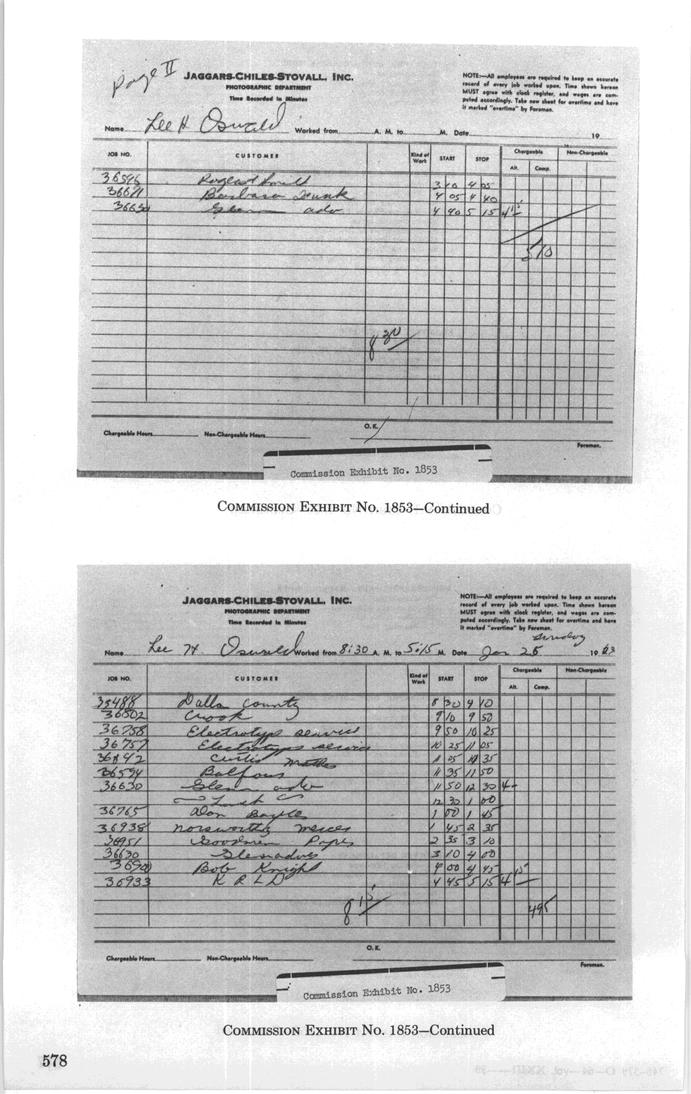 Page II
JAGGARS-CHILES-STOVALL, INC.
PHOTOGRAPHIC DEPARTMENT
Time Recorded in Minutes
NOTE:—All employees are required to keep an accurate
record of every job worked upon. Time shown hereon
MUST agree with clock register, and wages are com-
puted accordingly. Take new sheet for overtime and have
it marked "overtime" by Foreman.
Name Lee H. Oswald Worked from A. M. to M. Date 19
JOB NO. CUSTOMER Kind of Work START STOP Chargeable Non-Chargeable
Alt. Comp.
36596 3 10 4 05
36671 Barbara 4 05 4 40
36630 Glenn adv 4 40 5 15 4 15
510
8 30
O.K.
Chargeable Hours Non-Chargeable Hours
Foreman.
Commission Exhibit No. 1853
COMMISSION EXHIBIT No. 1853—Continued
JAGGARS-CHILES-STOVALL, INC.
PHOTOGRAPHIC DEPARTMENT
Time Recorded in Minutes
NOTE:—All employees are required to keep an accurate
record of every job worked upon. Time shown hereon
MUST agree with clock register, and wages are com-
puted accordingly. Take new sheet for overtime and have
it marked "overtime" by Foreman.
Name Lee H. Oswald Worked from 8:30 A. M. to 5:15 M. Date Jan 25 1963
JOB NO. CUSTOMER Kind of Work START STOP Chargeable Non-Chargeable
Alt. Comp.
35488 Dallas County 8 30 9 10
36502 Crook 9 10 9 50
36758 Electrotype service 9 50 10 25
36757 Electrotype service 10 25 11 05
Curtis Mathes 11 05 11 35
36594 Balfour 11 35 11 50
36630 Glenn adv 11 50 12 30 4
Lunch 12 30 1 00
36765 Don Bayles 1 00 1 45
36938 Norsworthy Mercer 1 45 2 35
36951 Goodman 2 35 3 10
36630 Glenn adv 3 10 4 00
Bob Knight 4 00 4 45
36933 K R L D 4 45 5 15 4 15
8 15
495
O.K.
Chargeable Hours Non-Chargeable Hours
Foreman.
Commission Exhibit No. 1853
COMMISSION EXHIBIT No. 1853—Continued
578